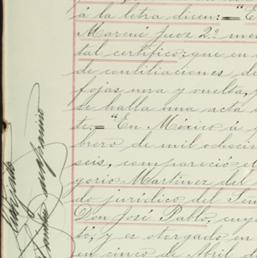 á la letra dicen: = "E
Marcué Juez 2º me
tal certifico: que en
de conciliaciones de
fojas una y vuelta,
se halla una acta
te. = "En México á
brero de mil ochoci
seis, compareció el
gorio Martinez del
do juridico del Ten
Don José Pablo, cuyo
só, y es otorgado en
en cinco de Abril d